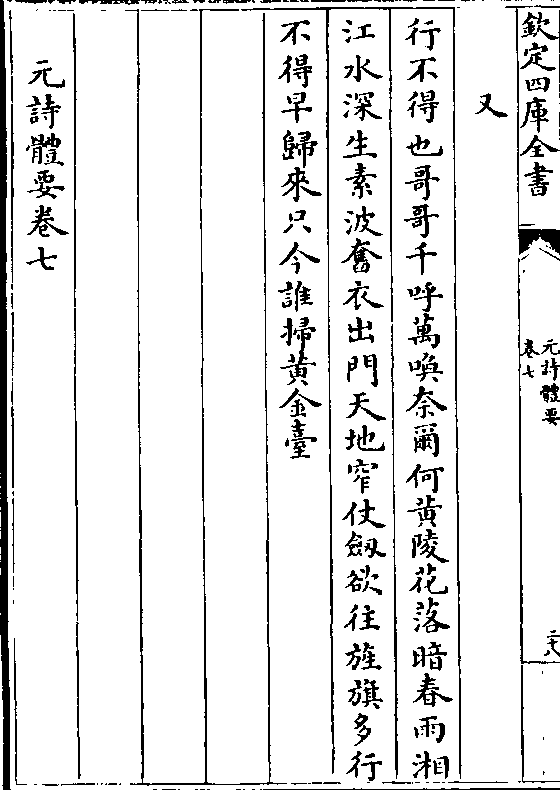 欽定四庫全書
元詩體要
卷七
二十八
又
行不得也哥哥千呼萬喚奈爾何黃陵花落暗春雨湘
江水深生素波奮衣出門天地窄仗劔欲往旌旗多行
不得早歸來只今誰掃黃金臺
元詩體要卷七